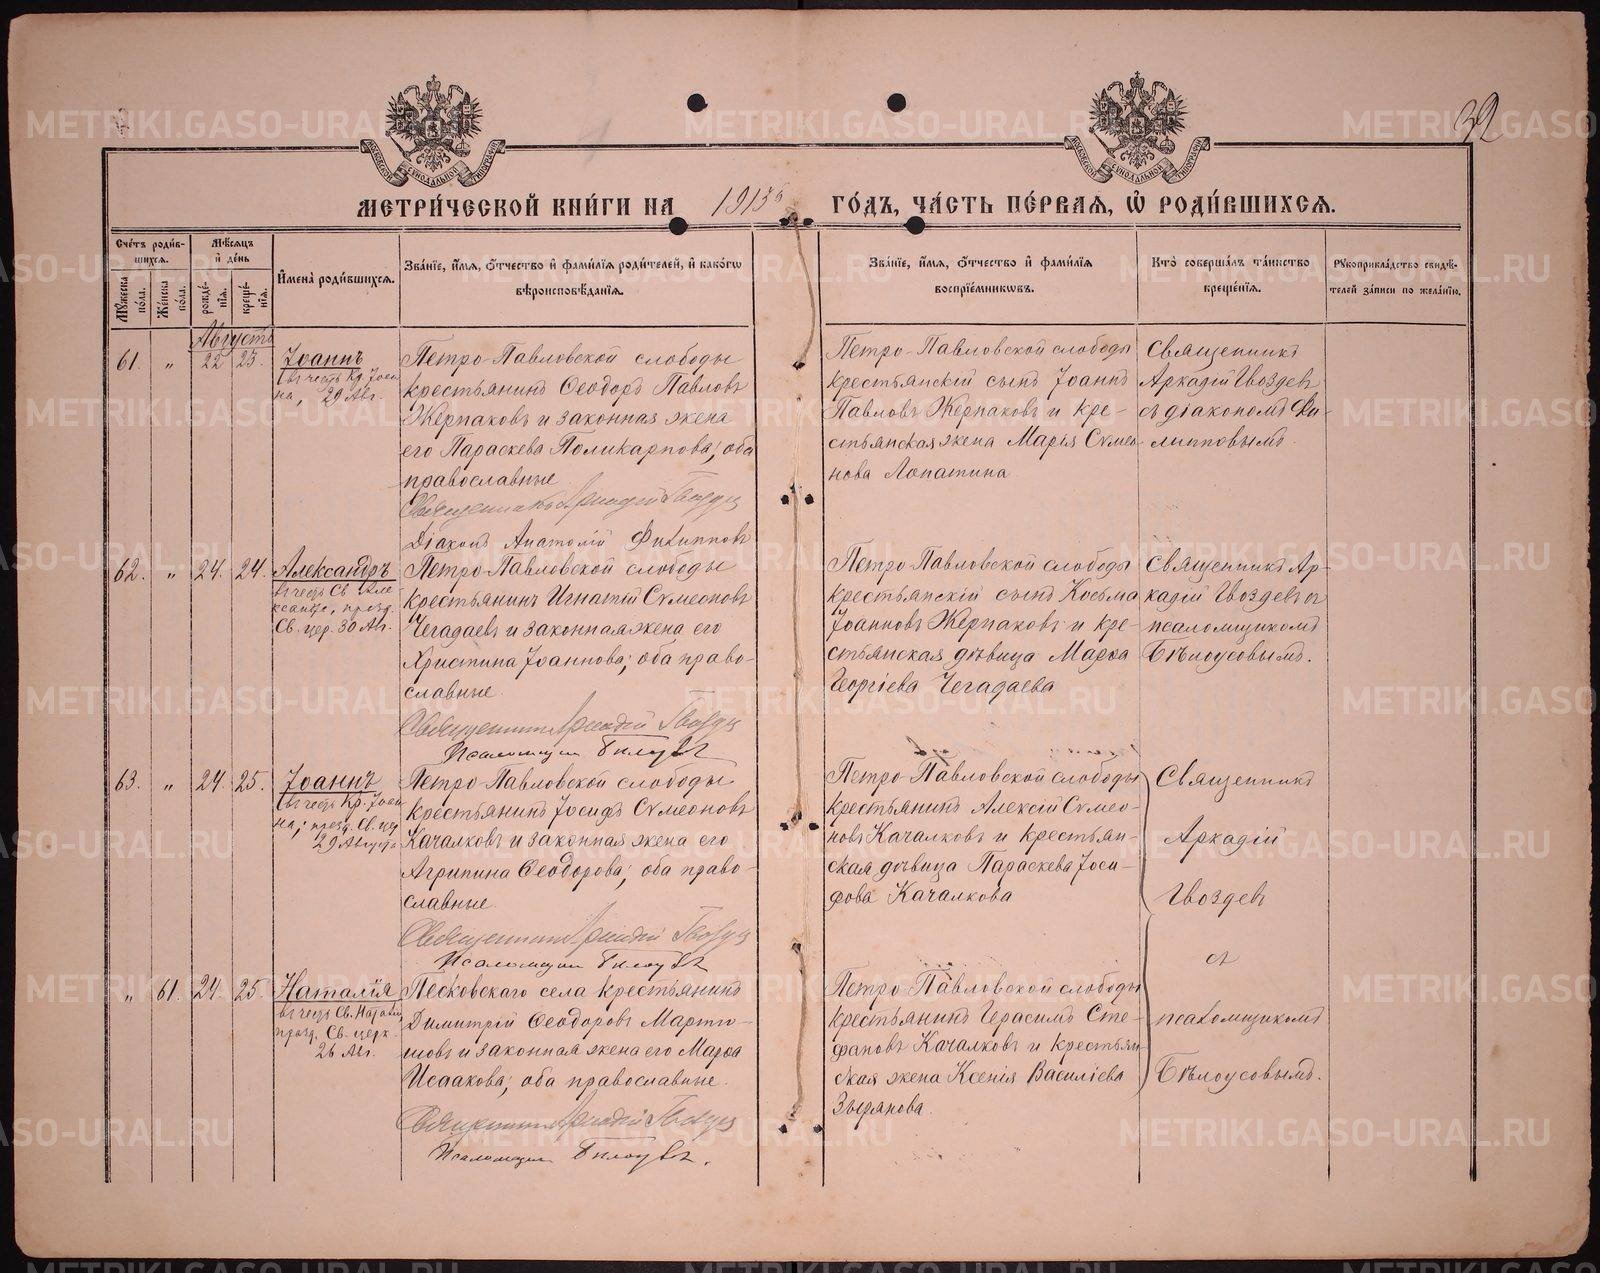 32
МЕТРИ́ЧЕСКОЙ КНИ́ГИ НА 1915й ГО́ДЪ, ЧА́СТЬ ПЕ́РВАЯ, Ѡ҆ РОДИ́ВШИХСЯ.
Сче́тъ роди́вшихся.
Мꙋ́жеска по́ла.
Же́нска по́ла.
Мѣ́сяцъ и҆ де́нь
рожде́нїя.
креще́нїя.
И҆мена̀ роди́вшихся.
Зва́нїе, и҆́мя, ѻ҆́тчество и҆ фами́лїя роди́телей, и҆ како́гѡ
вѣроисповѣ́данїя.
Зва́нїе, и҆́мя, ѻ҆́тчество и҆ фами́лїя
воспрїе́мникѡвъ.
Кто̀ соверша́лъ та́инство
креще́нїя.
Рꙋкоприкла́дство свидѣ́-
телей за́писи по жела́нїю.
Августъ
61. " 22 25.
Іоаннъ
(въ честь Кр. Іоан
на, 29 Авг.
Петро-Павловской слободы
крестьянинъ Ѳеодоръ Павловъ
Жерпаковъ и законная жена
его Параскева Поликарпова; оба
православные.
Священникъ Аркадій Гвоздевъ
Діаконъ Анатолій Филипповъ
Петро-Павловской слободы
крестьянскій сынъ Іоаннъ
Павловъ Жерпаковъ и кре-
стьянская жена Марія Сѵмео-
нова Лопатина
Священникъ
Аркадій Гвоздевъ
съ діакономъ Фи-
липповымъ.
62. " 24. 24.
Александръ
въ честь Св. Але
ксандр., празд.
Св. цер. 30 Авг.
Петро-Павловской слободы
крестьянинъ Игнатій Сѵмеоновъ
Чегадаевъ и законная жена его
Христина Іоаннова; оба право-
славные.
Священникъ Аркадій Гвоздевъ
Псаломщикъ Бѣлоусовъ
Петро-Павловской слободы
крестьянскій сынъ Косьма
Іоанновъ Жерпаковъ и кре-
стьянская дѣвица Марѳа
Георгіева Чегадаева
Священникъ Ар-
кадій Гвоздевъ съ
псаломщикомъ
Бѣлоусовымъ.
63. " 24. 25.
Іоаннъ
(въ честь Кр. Іоан
на; празд. Св. цер
29 Августа
Петро-Павловской слободы
крестьянинъ Іосифъ Сѵмеоновъ
Качалковъ и законная жена его
Агрипина Ѳеодорова; оба право-
славные.
Священникъ Аркадій Гвоздевъ
Псаломщикъ Бѣлоусовъ
Петро-Павловской слободы
крестьянинъ Алексій Сѵмео-
новъ Качалковъ и крестьян-
ская дѣвица Параскева Іоси-
фова Качалкова
Священникъ
Аркадій
Гвоздевъ
съ
псаломщикомъ
Бѣлоусовымъ.
" 61. 24. 25.
Наталія
въ честь Св. Наталіи
празд. Св. церк.
26 Авг.
Песковскаго села крестьянинъ
Димитрій Ѳеодоровъ Мартю-
шовъ и законная жена его Марѳа
Исаакова; оба православные.
Священникъ Аркадій Гвоздевъ
Псаломщикъ Бѣлоусовъ.
Петро-Павловской слободы
крестьянинъ Герасимъ Сте-
фановъ Качалковъ и крестьян-
ская жена Ксенія Василіева
Зырянова.
METRIKI.GASO-URAL.RU